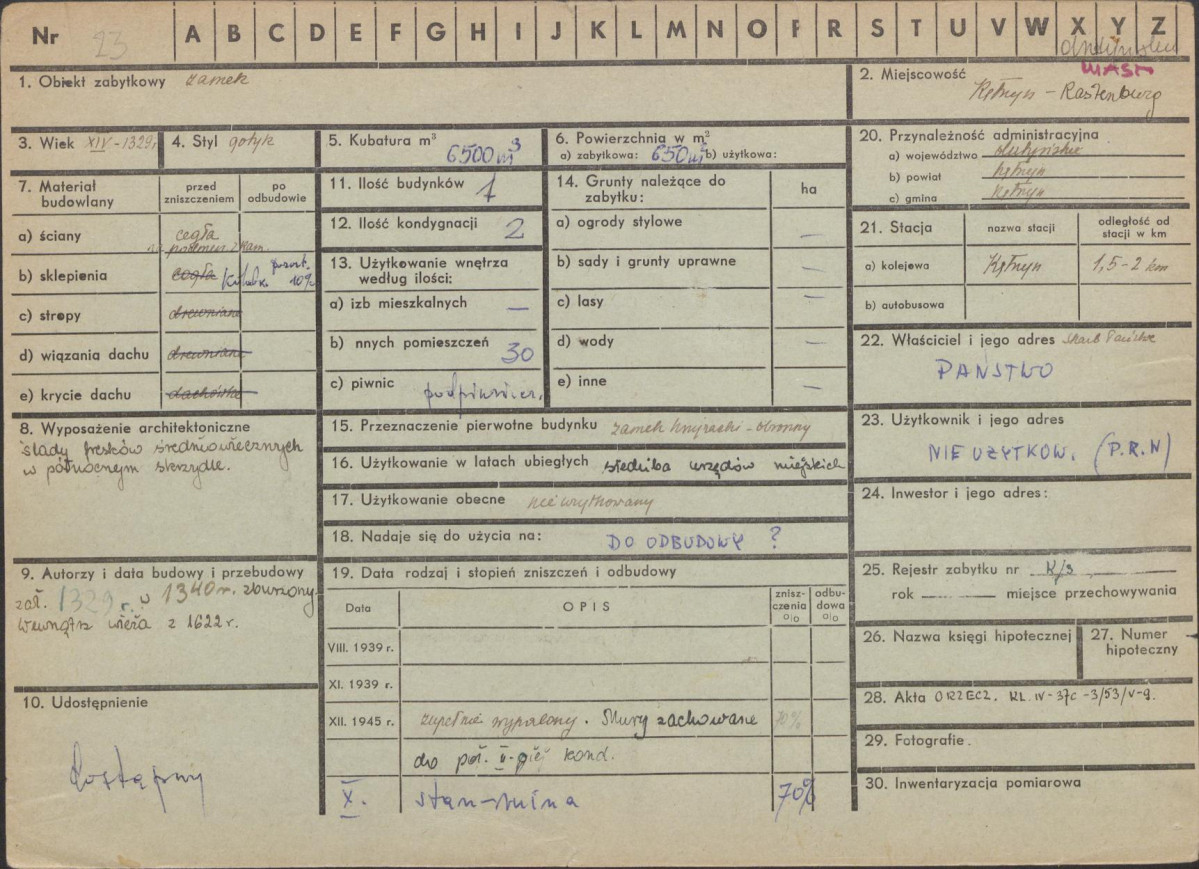 Nr 23 A B C D E F G H I J K L M N O P R S T U V W X Y Z
MAST
1. Obiekt zabytkowy zamek
2. Miejscowość Kętrzyn - Rastenburg
3. Wiek XIV - 1329 r.
4. Styl gotyk
5. Kubatura m³ 6500 m³
6. Powierzchnia w m²
a) zabytkowa: 650 m² b) użytkowa:
7. Materiał budowlany
przed zniszczeniem
po odbudowie
a) ściany cegła
na kam.
b) sklepienia cegła 10%
c) stropy drewniane
d) wiązania dachu drewniane
e) krycie dachu dachówka
8. Wyposażenie architektoniczne
ślady fresków średniowiecznych
w północnym skrzydle.
9. Autorzy i data budowy i przebudowy
zał. 1329 r. w 1340 r. zburzony.
Wewnątrz wieża z 1622 r.
10. Udostępnienie
dostępny
11. Ilość budynków 1
12. Ilość kondygnacji 2
13. Użytkowanie wnętrza
według ilości:
a) izb mieszkalnych —
b) nnych pomieszczeń 30
c) piwnic podpiwnicz.
14. Grunty należące do
zabytku:
ha
a) ogrody stylowe —
b) sady i grunty uprawne —
c) lasy —
d) wody —
e) inne —
15. Przeznaczenie pierwotne budynku zamek krzyżacki - obronny
16. Użytkowanie w latach ubiegłych siedziba urzędów miejskich
17. Użytkowanie obecne nieużytkowany
18. Nadaje się do użycia na: DO ODBUDOWY ?
19. Data rodzaj i stopień zniszczeń i odbudowy
Data
OPIS
znisz-
czenia
o|o
odbu-
dowa
o|o
VIII. 1939 r.
XI. 1939 r.
XII. 1945 r. zupełnie wypalony. Mury zachowane 70%
do poł. II-giej kond.
X. stan - ruina 70%
20. Przynależność administracyjna
a) województwo olsztyńskie
b) powiat Kętrzyn
c) gmina Kętrzyn
21. Stacja
nazwa stacji
odległość od
stacji w km
a) kolejowa Kętrzyn 1,5 - 2 km
b) autobusowa
22. Właściciel i jego adres Skarb Państwa
PAŃSTWO
23. Użytkownik i jego adres
NIE UŻYTKOW. (P.R.N)
24. Inwestor i jego adres:
25. Rejestr zabytku nr K/3
rok miejsce przechowywania
26. Nazwa księgi hipotecznej
27. Numer
hipoteczny
28. Akta ORZECZ. KL. IV-37c-3/53/V-9.
29. Fotografie.
30. Inwentaryzacja pomiarowa